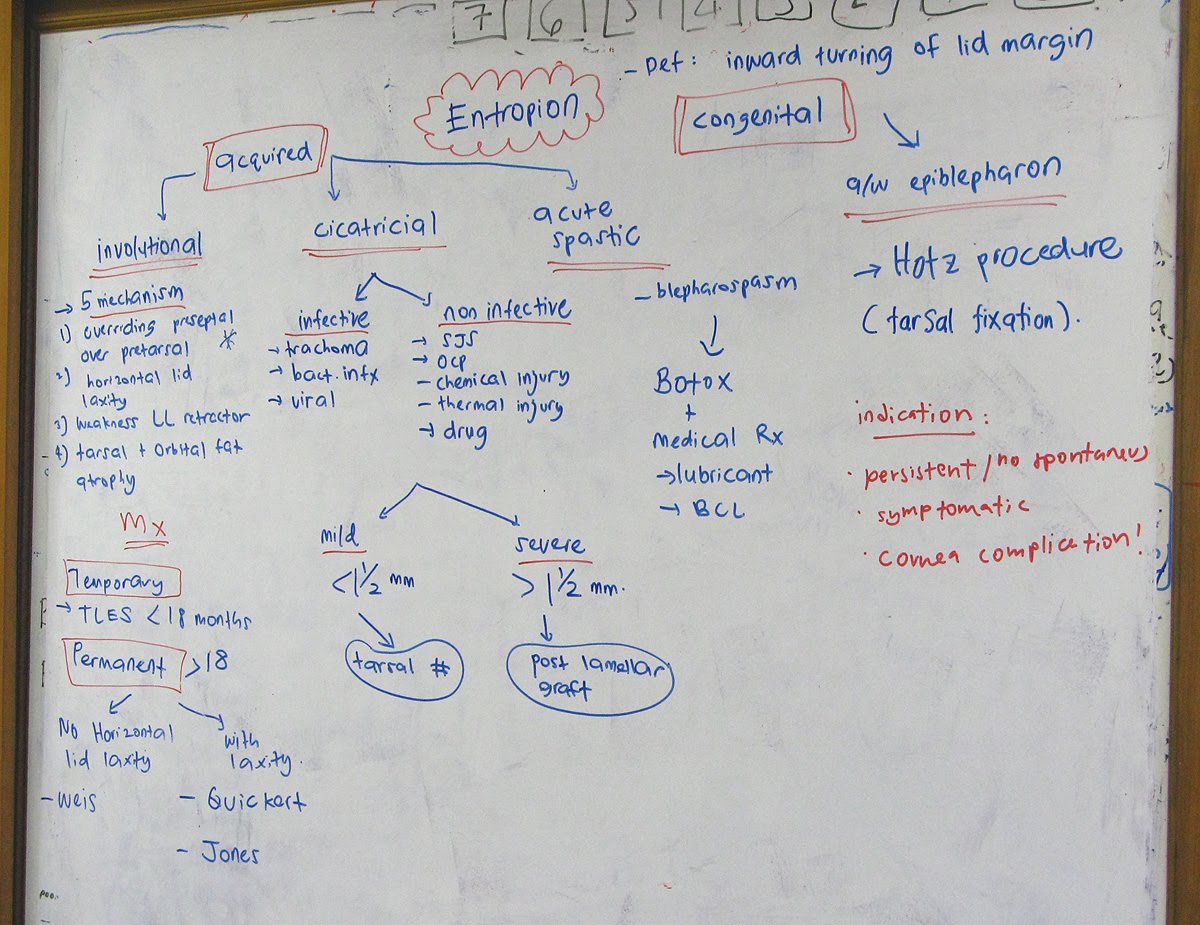 7 6 5 4 3
Entropion
- Def: inward turning of lid margin
acquired
involutional
→ 5 mechanism
1) overriding preseptal
over pretarsal *
2) horizontal lid
laxity
3) weakness LL retractor
4) tarsal + Orbital fat
atrophy
Mx
Temporary
→ TLES < 18 months
Permanent >18
No Horizontal
lid laxity
- Weis
with
laxity.
- Quickert
- Jones
cicatricial
infective
→ trachoma
→ bact. infx
→ viral
non infective
→ SJS
→ OCP
- chemical injury
- thermal injury
→ drug
mild
<1 1/2 mm
tarsal #
severe
>1 1/2 mm.
post lamellar
graft
acute
spastic
- blepharospasm
Botox
+
medical Rx
→ lubricant
→ BCL
congenital
a/w epiblepharon
→ Hotz procedure
(tarsal fixation).
indication:
· persistent/no spontaneus
· symptomatic
· cornea complication!
poo.